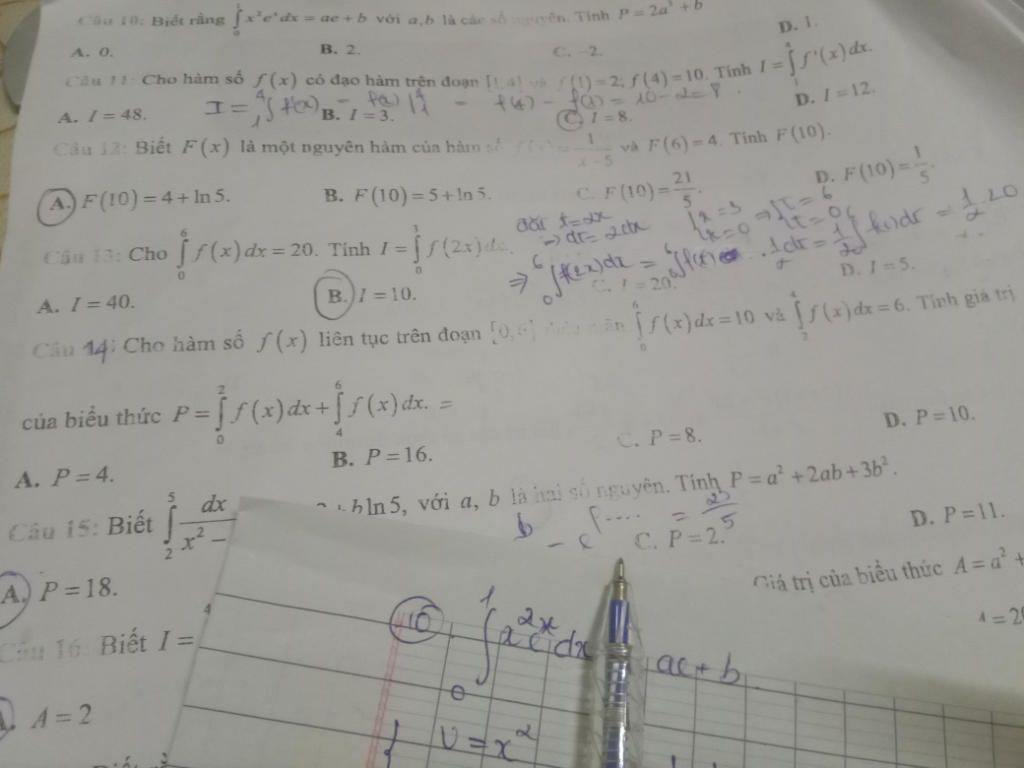 Câu 10: Biết rằng ∫₀¹ x²eˣdx = ae + b với a,b là các số nguyên. Tính P = 2a³ + b
A. 0. B. 2. C. -2. D. 1.
Câu 11: Cho hàm số f(x) có đạo hàm trên đoạn [1;4] và f(1) = 2; f(4) = 10. Tính I = ∫₁⁴ f'(x)dx.
I = ₁∫⁴ f(x) = f(x)|₁⁴ = f(4) - f(1) = 10 - 2 = 8
A. I = 48. B. I = 3. C. I = 8. D. I = 12.
Câu 12: Biết F(x) là một nguyên hàm của hàm số f(x) = 1/(x-5) và F(6) = 4. Tính F(10).
A. F(10) = 4 + ln5. B. F(10) = 5 + ln5. C. F(10) = 21/5. D. F(10) = 1/5.
đặt t = 2x
→ dt = 2dx
{x = 3 x = 0 ⇒ {t = 6 t = 0
Câu 13: Cho ∫₀⁶ f(x)dx = 20. Tính I = ∫₀³ f(2x)dx.
⇒ ₀∫⁶ f(2x)dx = ₀∫⁶ f(t) . 1/2 dt = 1/2 ∫₀⁶ f(x)dx = 1/2 20
A. I = 40. B. I = 10. C. I = 20. D. I = 5.
Câu 14: Cho hàm số f(x) liên tục trên đoạn [0;6] thỏa mãn ∫₀⁶ f(x)dx = 10 và ∫₂⁴ f(x)dx = 6. Tính giá trị
của biểu thức P = ∫₀² f(x)dx + ∫₄⁶ f(x)dx. =
A. P = 4. B. P = 16. C. P = 8. D. P = 10.
Câu 15: Biết ∫₂⁵ dx/x² - bln5, với a, b là hai số nguyên. Tính P = a² + 2ab + 3b².
A. P = 18. C. P = 2. D. P = 11.
Câu 16: Biết I = Giá trị của biểu thức A = a² +
A = 2
10 ∫₀¹ x²eˣdx ae + b
{ U = x²